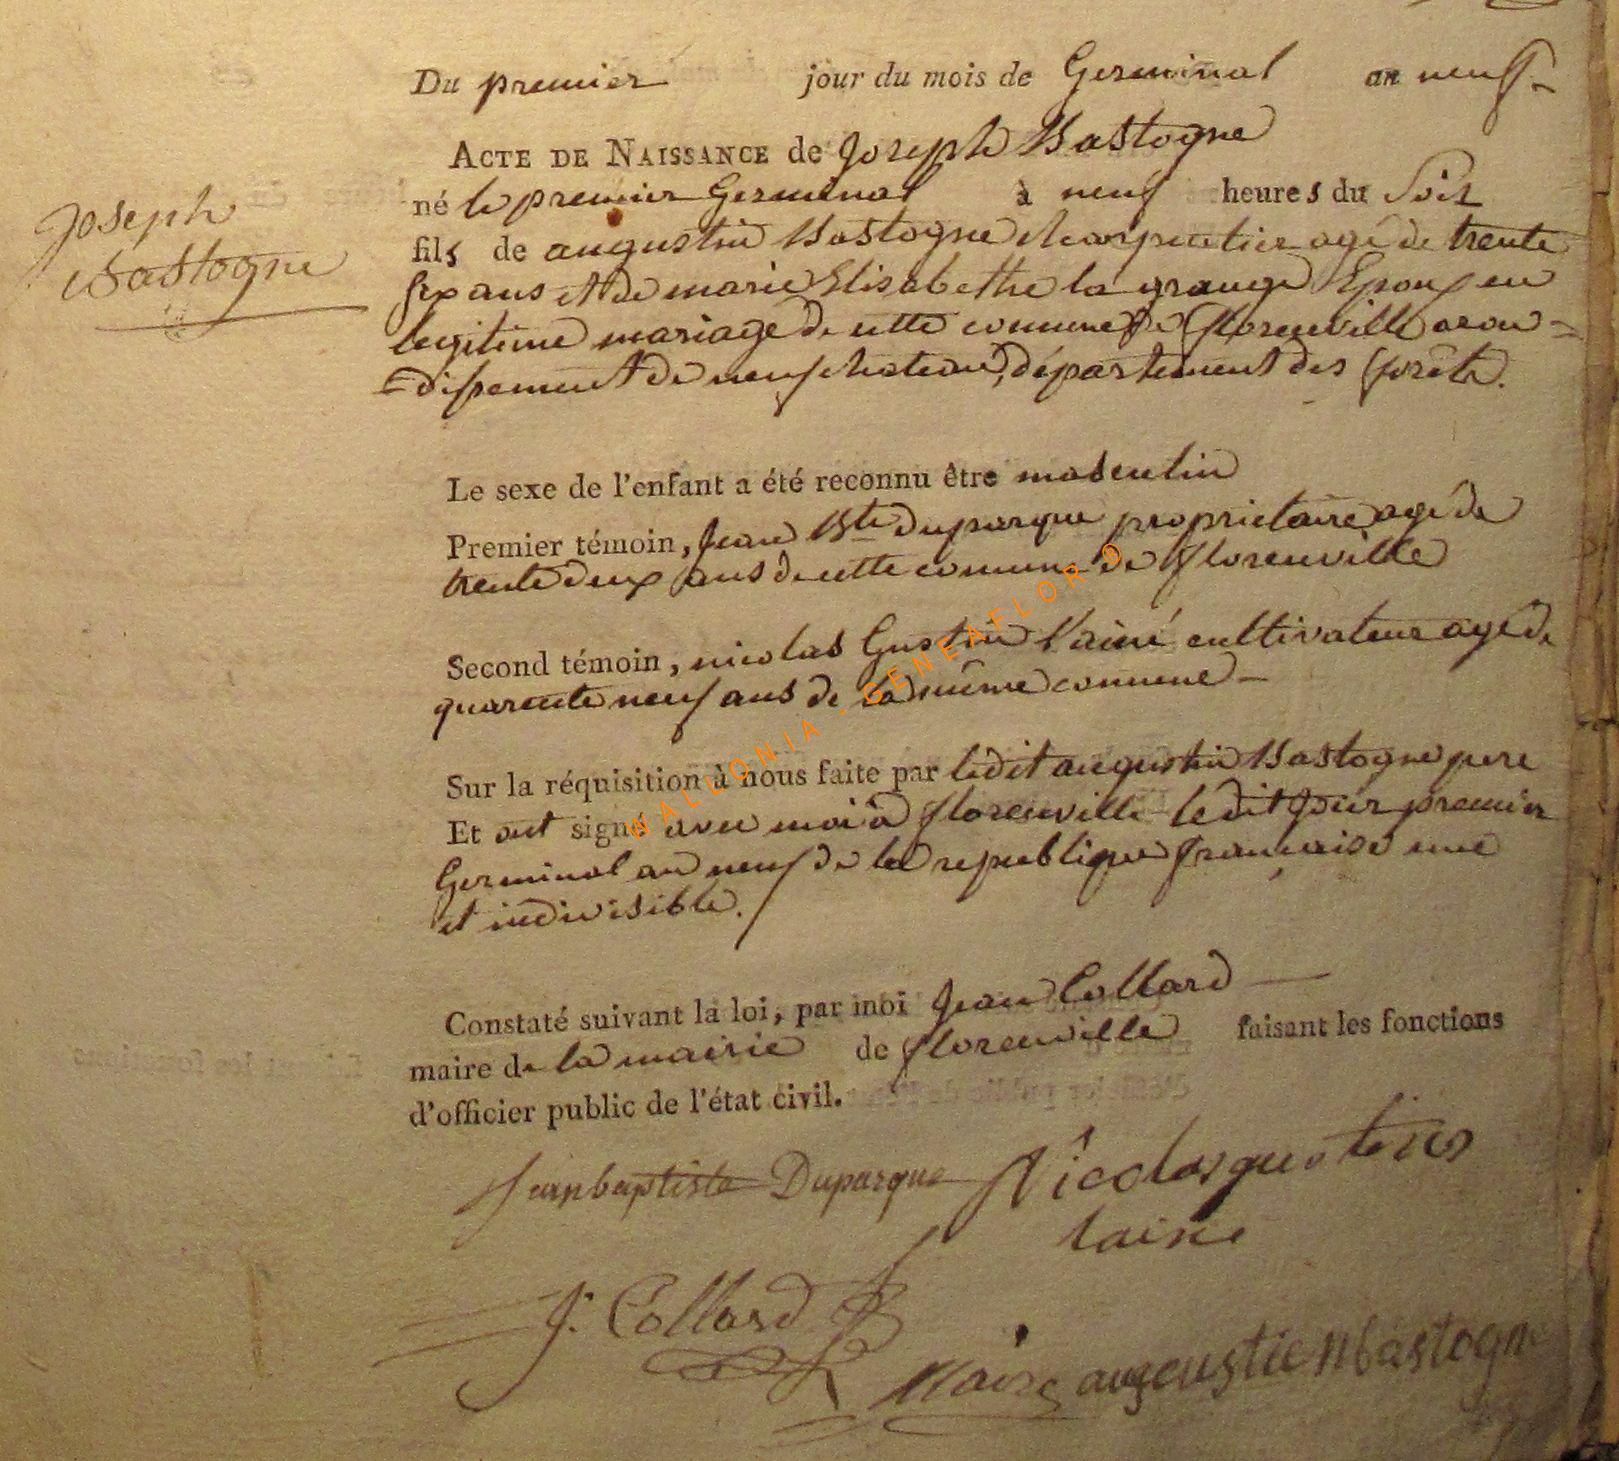 Du premier jour du mois de Germinal an neuf
ACTE DE NAISSANCE de Joseph Bastogne
Joseph
Bastogne
né le premier Germinal à neuf heures du Soir
fils de augustin Bastogne charpentier agé de trente
six ans et de marie Elisabethe la grange Epoux en
legitime mariage de cette commune de florenville aron=
=dissement de neufchateau, département des forêts.
Le sexe de l'enfant a été reconnu être masculin
Premier témoin, Jean Bte duparque proprietaire agé de
trente deux ans de cette commune de florenville
Second témoin, nicolas Gustin l'ainé cultivateur agé de
quarente neuf ans de la même commune
Sur la réquisition à nous faite par ledit augustin Bastogne pere
Et ont signé avec moi à florenville ledit Jour premier
Germinal an neuf de la republique française une
et indivisible.
Constaté suivant la loi, par moi Jean Collard
maire de la mairie de florenville faisant les fonctions
d'officier public de l'état civil.
Jean baptiste Duparque Nicolas gustin
laine
J. Collard
Maire augeustien bastogne
WALLONIA - GENEAFLOR D